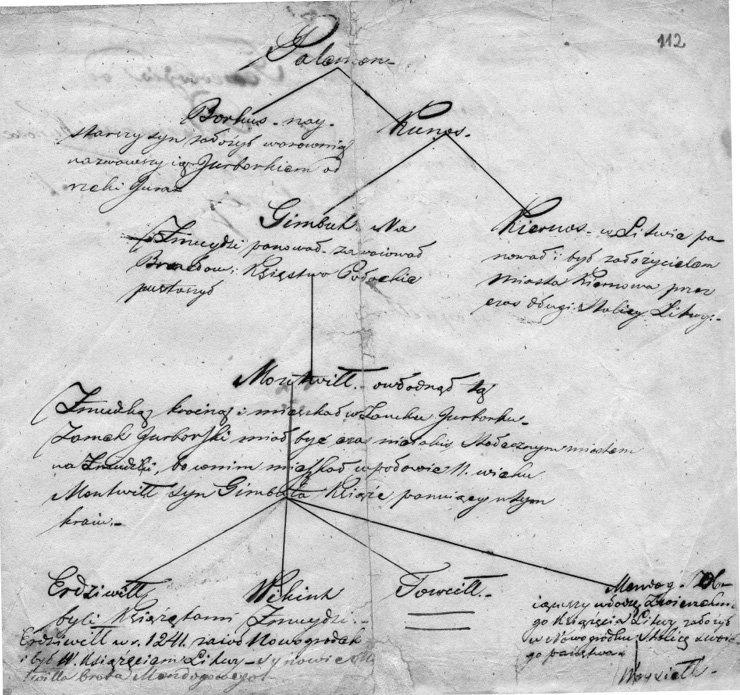 112
Palemon.-
Borkus - nay-
starszy syn założył warownię
nazwawszy ią Jurborkiem od
rzeki Jura-
Kunos.-
Gimbut - Na
Żmuydzi panował - zawoiował
Bracław i Księstwo Połockie
pustoszył
Kiernos - w Litwie pa-
nował i był założycielem
miasta Kiernowa przez
czas długi Stolicy Litwy:-
Montwiłł - owładnął tą
Żmudzką krainą i mieszkał w Zamku Jurborku-
Zamek Jurborski miał być czas niejakiś Stołecznym miastem
na Żmudzi, bo w nim mieszkał w połowie 11. wieku
Montwiłł syn Gimbuta Książe panuiący w tym
kraiu.-
Erdziwiłł
Wikint
Towciłł.-
byli Książętami Żmuydzi.-
Erdziwiłł w r. 1241. zaiął Nowogrodek
i był W. Księciem Litwy - Synowie
twiłła brata Mendogowego.-
Mendog -
władzę
go Księcia Litwy założył
w Nowogródku Stolicę swoie-
go państwa-
Woysiełk.-